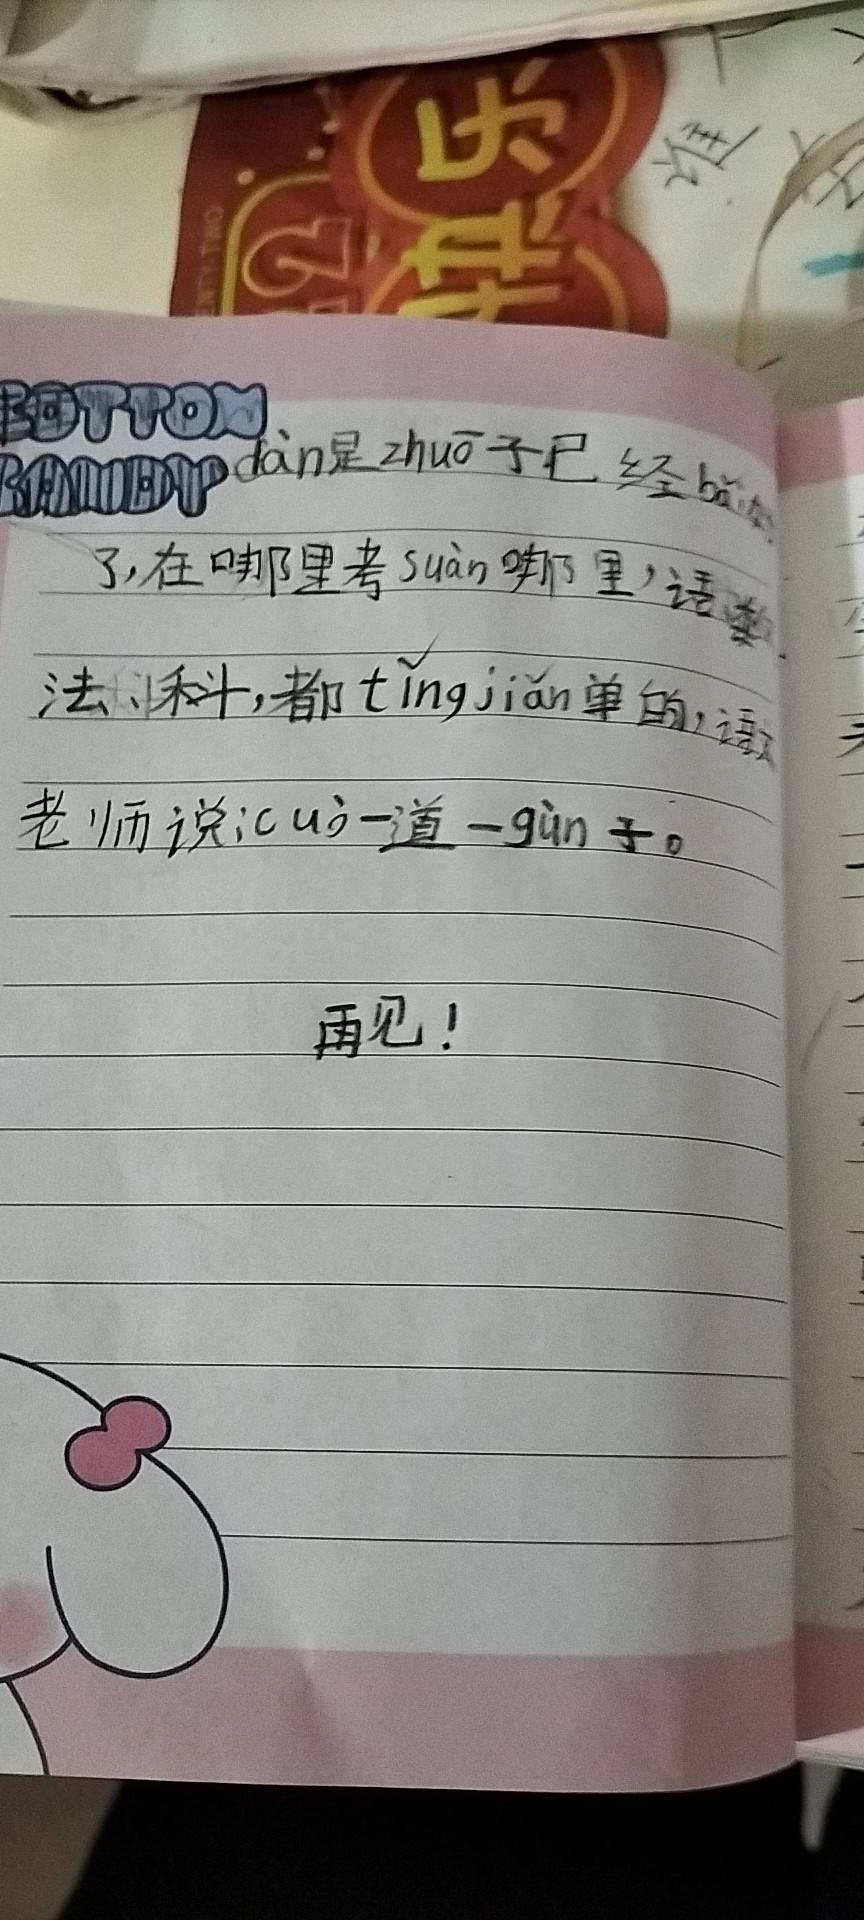 快乐
谁
COTTON
CANDY
dàn是zhuō子已经bǎi好
了,在哪里考suàn哪里,语数
法、科,都tǐngjiǎn单的,语文
老师说:cuò一道一gùn子。
再见!